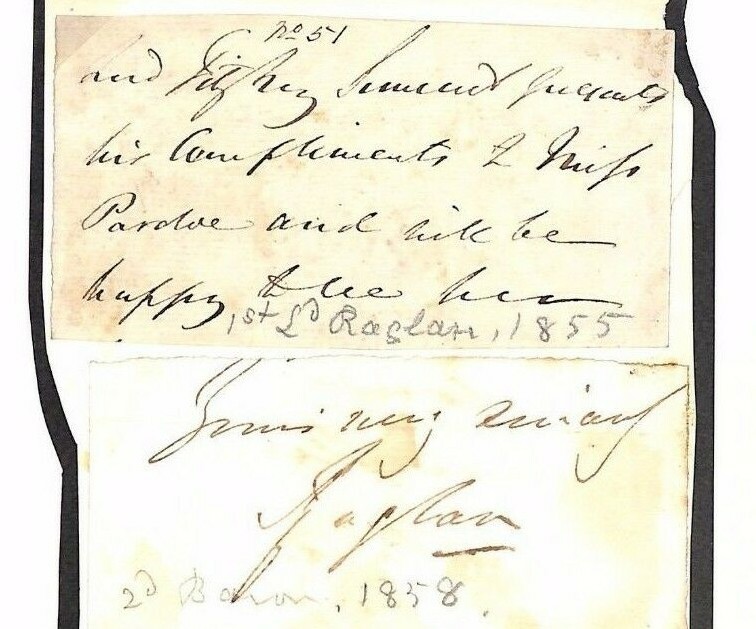 No 51
and Fitzroy Somerset presents
his Compliments to Miss
Pardoe and will be
happy to see her
1st Ld Raglan, 1855
Yours very sincerely
Raglan
2d Baron, 1858.